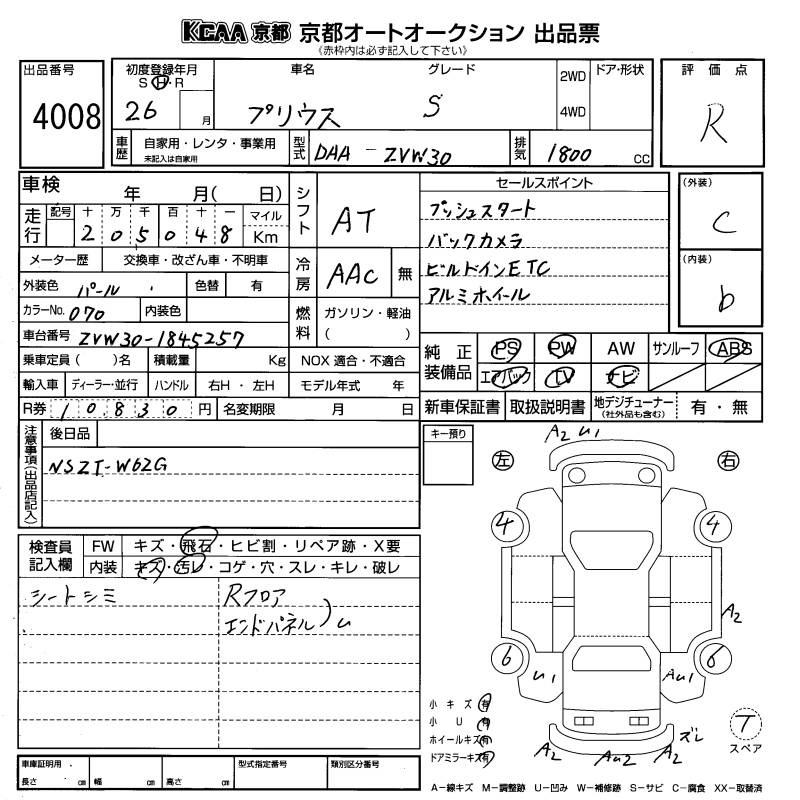 KCAA 京都 京都オートオークション 出品票
《赤枠内は必ず記入して下さい》
出品番号
4008
初度登録年月
S・H・R
26 月
車名
プリウス
グレード
S
2WD
4WD
ドア・形状
評価点
R
車歴 自家用・レンタ・事業用
未記入は自家用
型式 DAA-ZVW30
排気 1800 cc
車検 年 月( 日)
走行 記号 十 万 千 百 十 一 マイル
2 0 5 0 4 8 Km
シフト AT
メーター歴 交換車・改ざん車・不明車
外装色 パール 色替 有
冷房 AAC 無
カラーNo. 070 内装色
燃料 ガソリン・軽油
( )
車台番号 ZVW30-1845257
乗車定員( )名 積載量 Kg NOX 適合・不適合
輸入車 ディーラー・並行 ハンドル 右H・左H モデル年式 年
R券 10830 円 名変期限 月 日
セールスポイント
プッシュスタート
バックカメラ
ビルドインETC
アルミホイール
(外装)
C
(内装)
b
純正装備品 PS PW AW サンルーフ ABS
エアバック TV ナビ
新車保証書 取扱説明書 地デジチューナー 有・無
(社外品も含む)
注意事項(出品店記入)
後日品
NSZT-W62G
キー預り
左
右
検査員記入欄
FW キズ・飛石・ヒビ割・リペア跡・X要
内装 キズ・汚レ・コゲ・穴・スレ・キレ・破レ
シートシミ
Rフロア
エンドパネル )U
A2 U1
4
4
A2
6
U1
AU1
6
小キズ 有
小U 有
ホイールキズ 有
ドアミラーキズ 有
A2
AU2
A2
ズレ
T
スペア
車庫証明用
長さ cm 幅 cm 高さ cm
型式指定番号
類別区分番号
A-線キズ M-調整跡 U-凹み W-補修跡 S-サビ C-腐食 XX-取替済